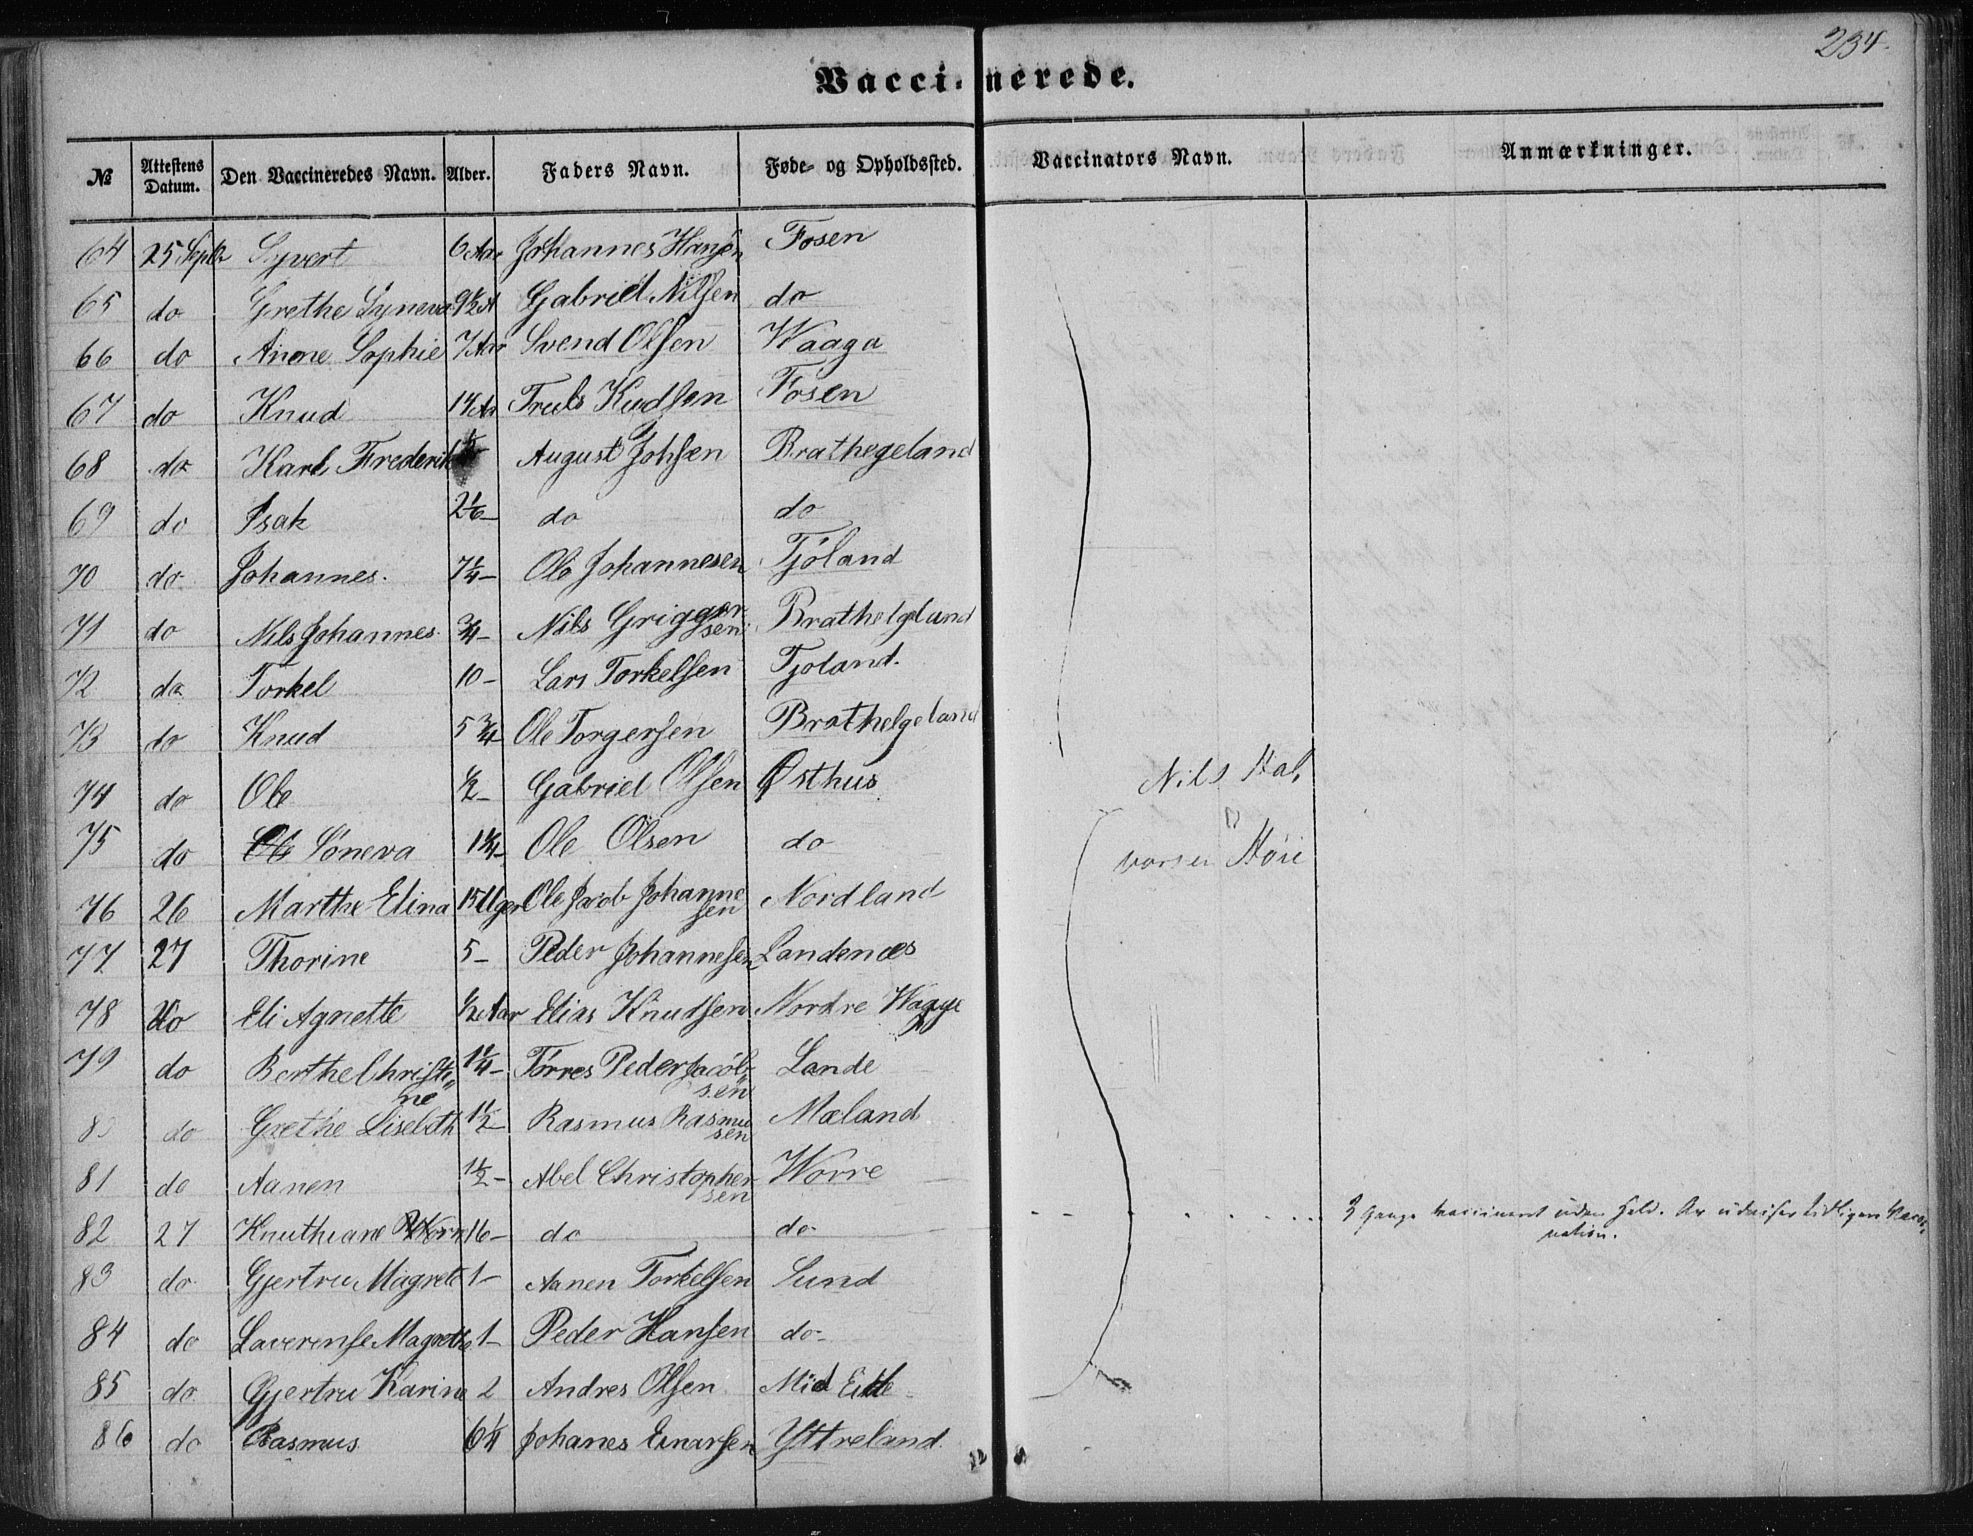 234.
Vaccinerede.
№ Attestens Datum. Den Vaccineredes Navn. Alder. Faders Navn. Føde- og Opholdssted. Vaccinators Navn. Anmærkninger.
64 25 Septr Syvert 6 Aar Johannes Hansen Fosen
65 do Grethe Syneva 9½ A Gabriel Nilsen do
66 do Anne Sophie 7 Aar Svend Olsen Waaga
67 do Knud 14 Aar Truls Kudsen Fosen
68 do Karl Frederik August Johsen Brathegeland
69 do Isak 2⅙ – do do
70 do Johannes. 7¼ – Ole Johannesen Tjøland
71 do Nils Johannes. ¾ – Nils Grigger
sen Brathelgeland
72 do Torkel 10 – Lars Torkelsen Tjoland.
73 do Knud 5¾ Ole Torgersen Brathelgeland
74 do Ole ½ – Gabriel Olsen Østhus
Nils Hal,
75 do Søneva 1¼ – Ole Olsen do
vorsen Høie
76 26 Marthe Elina 15 Uger Ole Jacob Johanne
sen Nordland
77 27 Thorine 5 – Peder Johannesen Landenæs
78 do Eli Agnette ½ Aar Elias Knudsen Nordre Wagge
79 do Berthe Christi
ne 1¼ – Tørres Peder Jacob
sen Lande
80 do Grethe Liseleth 1½ Rasmus Rasmu
sen Mæland
81 do Aanen 1½ – Abel Christopher
sen Worre
82 27 Knuthiane Worre 16 – do do 3 Gange vaccineret uden Held. Ar udviser tidligere Vacci
nation.
83 do Gjertru Magrete 1 – Aanen Torkelsen Sund
84 do Laverense Magrethe 1 – Peder Hansen do –
85 do Gjertru Karine 2 Andres Olsen Mid Eitte
86 do Rasmus 6¼ Johanes Einarsen Yttreland.